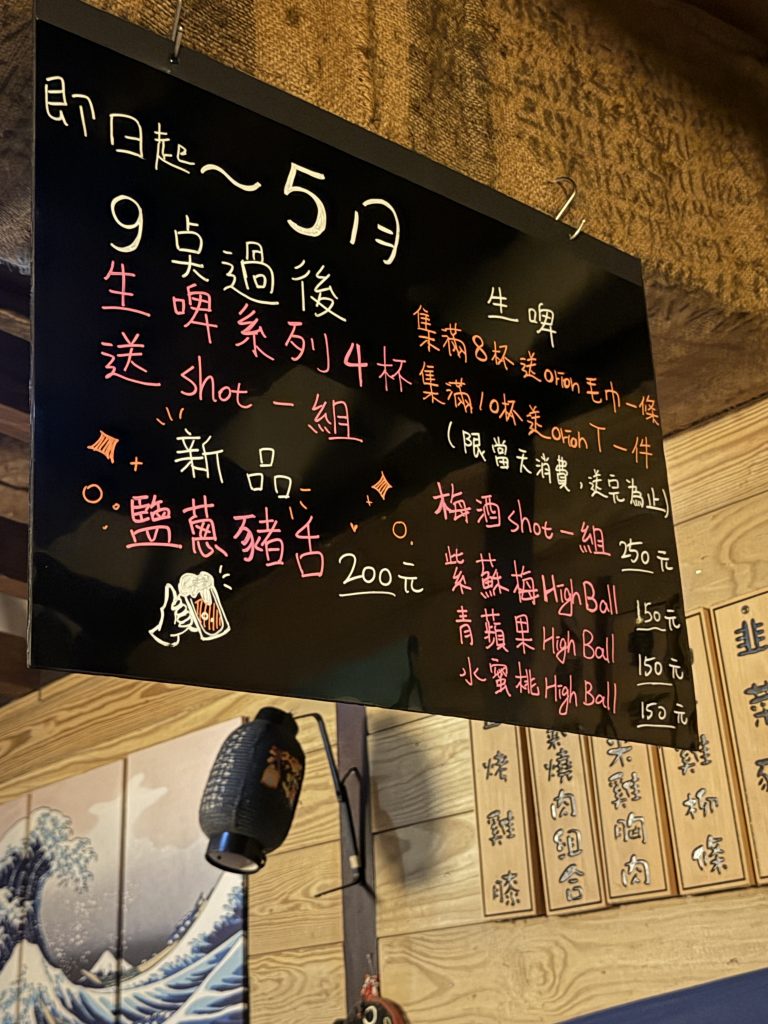 即日起～5月
9点過後
生啤系列4杯
送 shot 一組
新品
鹽蔥豬舌 200元
生啤
集滿8杯送orion毛巾一條
集滿10杯送orion T一件
(限當天消費，送完為止)
梅酒shot一組 250元
紫蘇梅High Ball 150元
青蘋果High Ball 150元
水蜜桃High Ball 150元
烤雞膝
燒肉組合
雞胸肉
雞柳條
韭菜